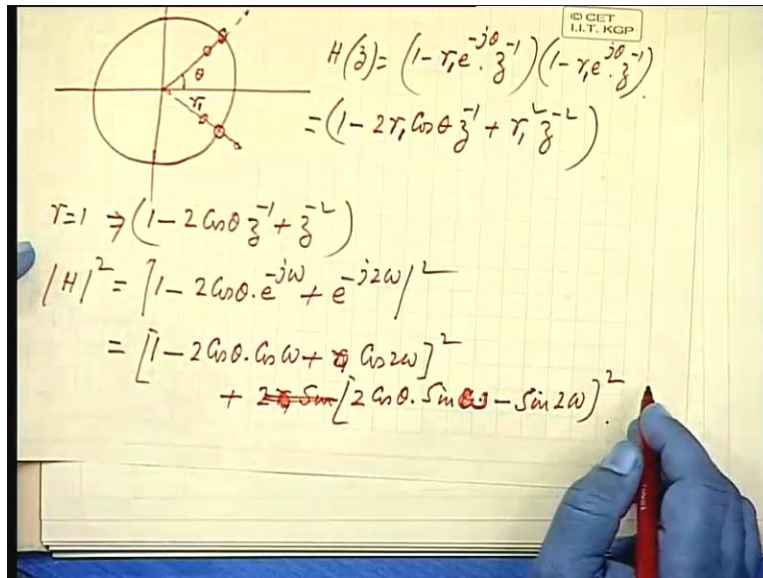 © CET
I.I.T. KGP
θ
r₁
H(z) = (1 - r₁e^{-jθ}·z^{-1})(1 - r₁e^{jθ}·z^{-1}).
= (1 - 2r₁ Cosθ z^{-1} + r₁² z^{-2})
r=1 ⇒ (1 - 2 Cosθ z^{-1} + z^{-2})
|H|² = |1 - 2Cosθ·e^{-jω} + e^{-j2ω}|²
= [1 - 2Cosθ·Cosω + Cos2ω]²
+ [2Cosθ·Sinω - Sin2ω]².